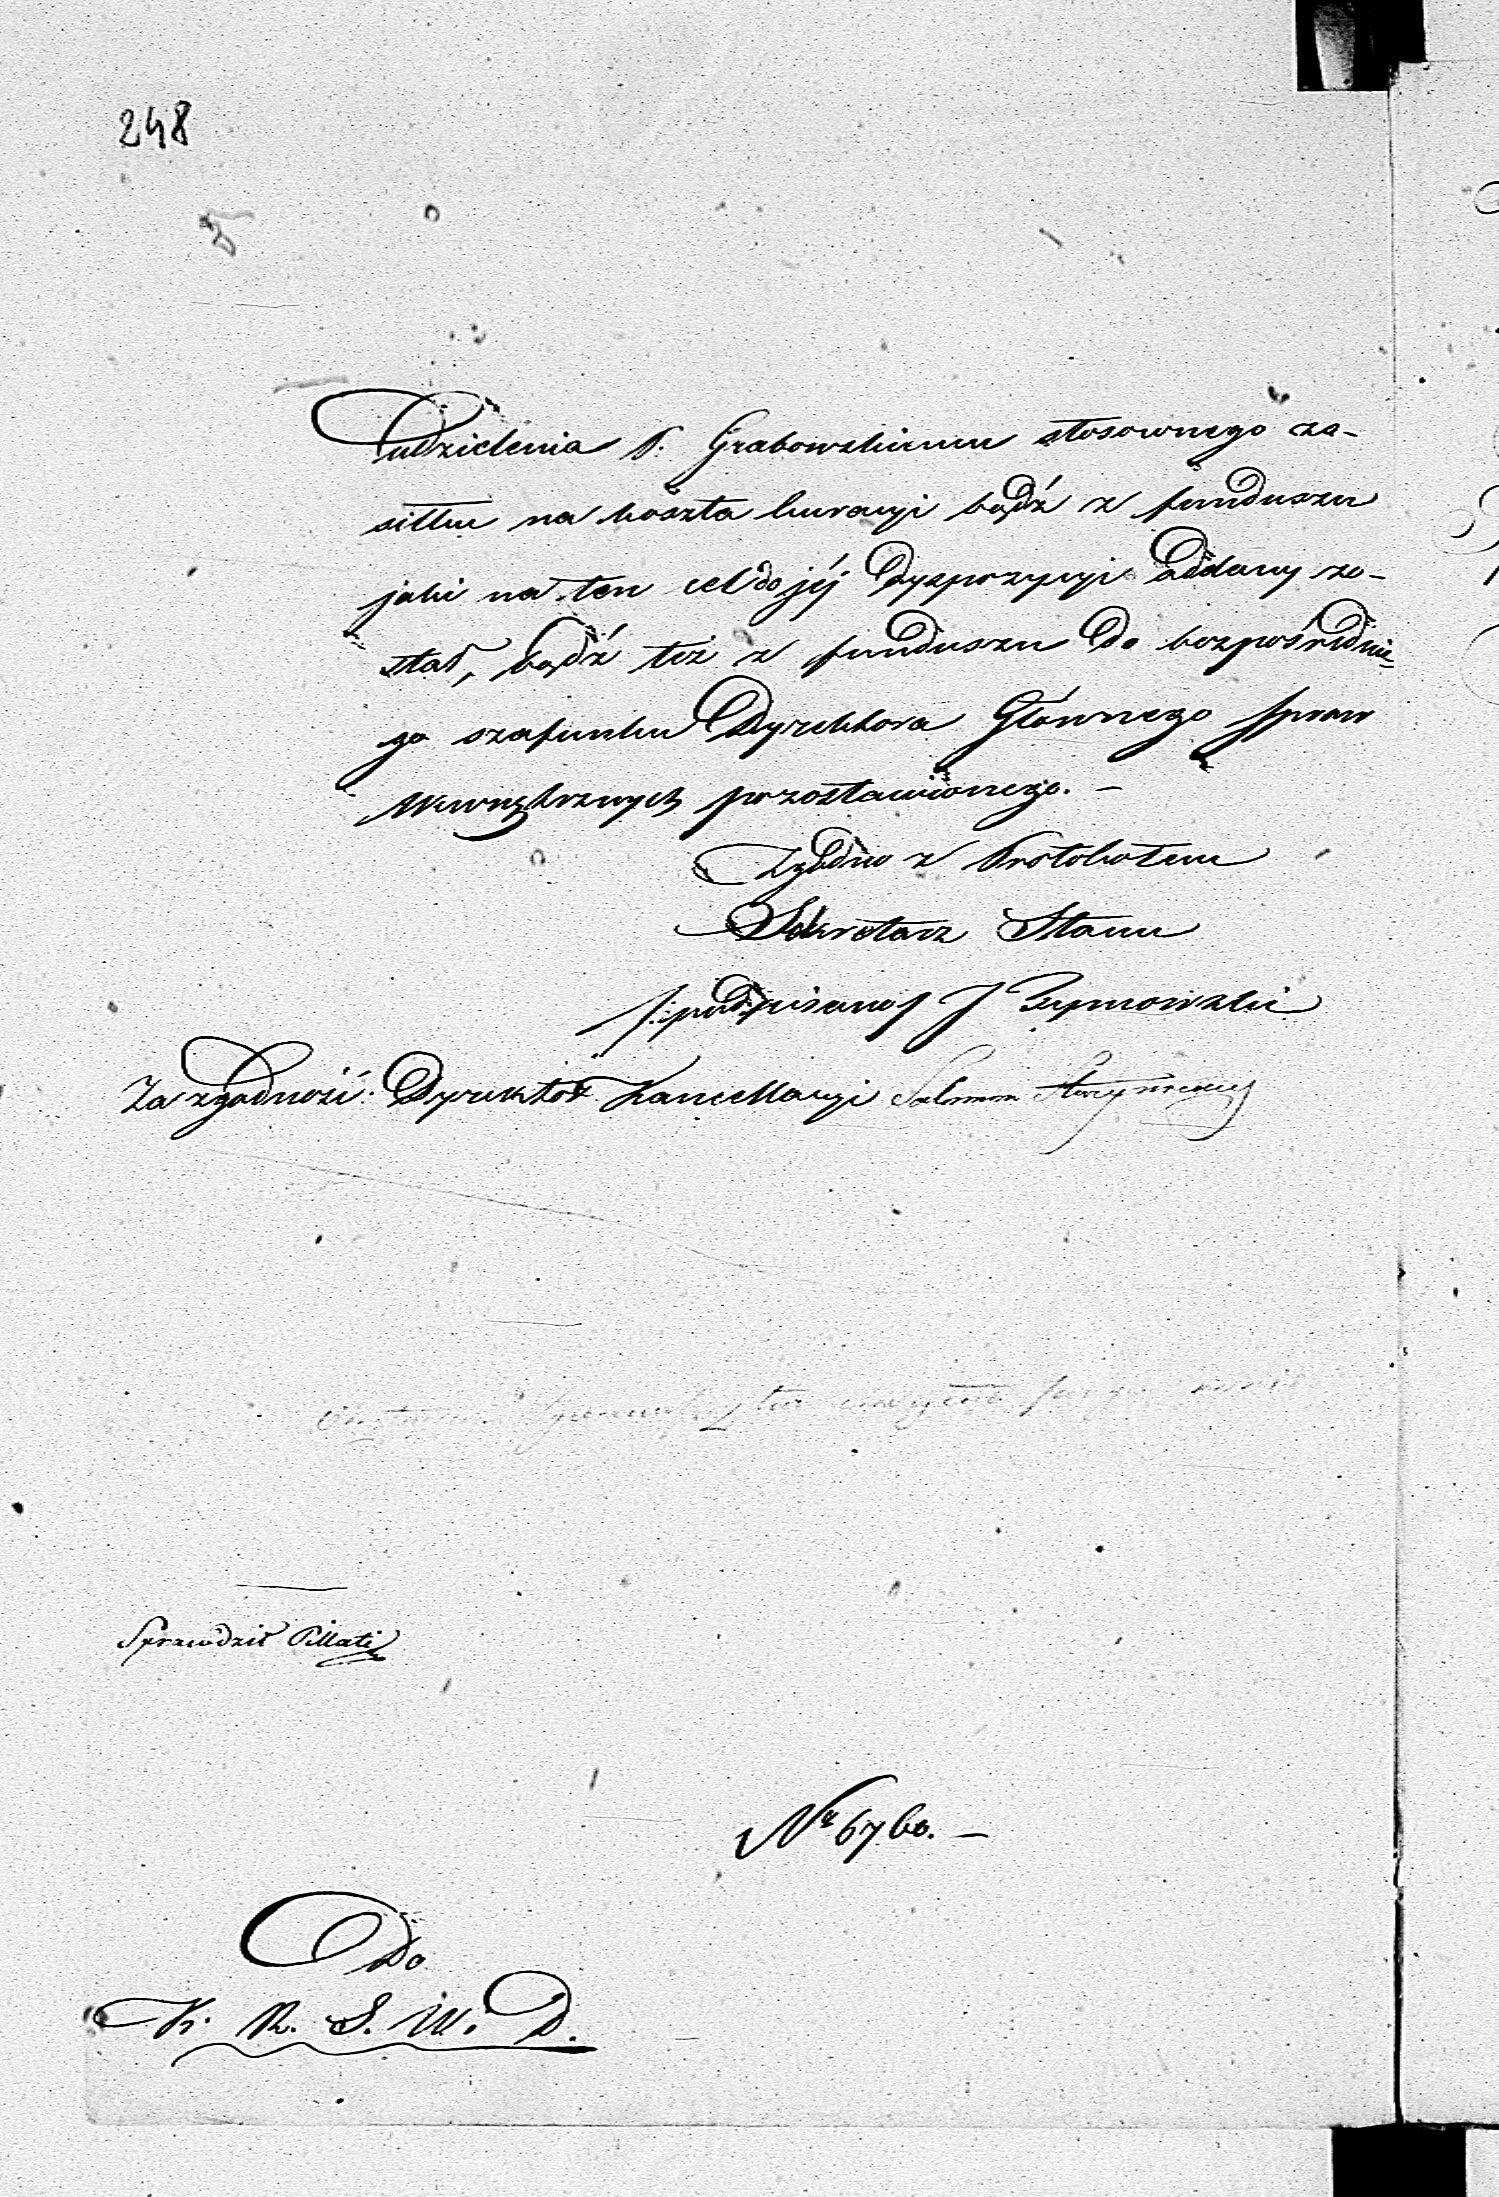 248
udzielenia P. Grabowskiemu stosownego za-
siłku na koszta kuracyi bądź z funduszu
jaki na ten cel do jéj dyspozycyi oddany zo-
stał, bądź też z funduszu do bezpośrednie-
go szafunku Dyrektora Głównego Spraw
Wewnętrznych pozostawionego. —
Zgodno z Protokołem
Sekretarz Stanu
/:podpisano/ J Tymowski
Za zgodność: Dyrektor Kancellaryi
Sprawdził Pillati
Nr 6760. —
Do
K. R. S. W. D.